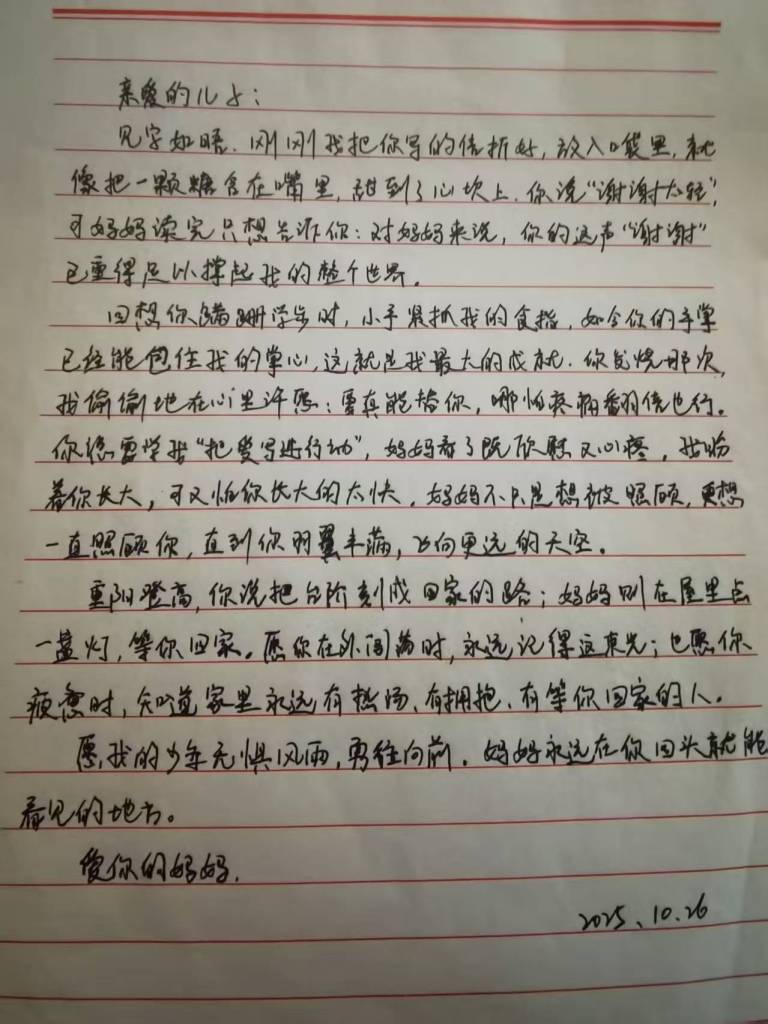 亲爱的儿子：
见字如晤.刚刚我把你写的信折好，放入口袋里，就
像把一颗糖含在嘴里，甜到了心坎上.你说“谢谢太轻”，
可妈妈读完只想告诉你：对妈妈来说，你的这声“谢谢”
已重得足以撑起我的整个世界。
回想你蹒跚学步时，小手紧抓我的食指，如今你的手掌
已经能包住我的掌心，这就是我最大的成就.你发烧那次，
我偷偷地在心里许愿：要真能替你，哪怕疼痛翻倍也行。
你总要学我“把爱写进行动”，妈妈看了既欣慰又心疼，我盼
着你长大，可又怕你长大的太快，妈妈不只是想被照顾，更想
一直照顾你，直到你羽翼丰满，飞向更远的天空。
重阳登高，你说把台阶刻成回家的路；妈妈则在屋里点
一盏灯，等你回家。愿你在外闯荡时，永远记得这束光；也愿你
疲惫时，知道家里永远有热汤、有拥抱、有等你回家的人。
愿我的少年无惧风雨，勇往向前.妈妈永远在你回头就能
看见的地方。
爱你的妈妈.
2025、10.26